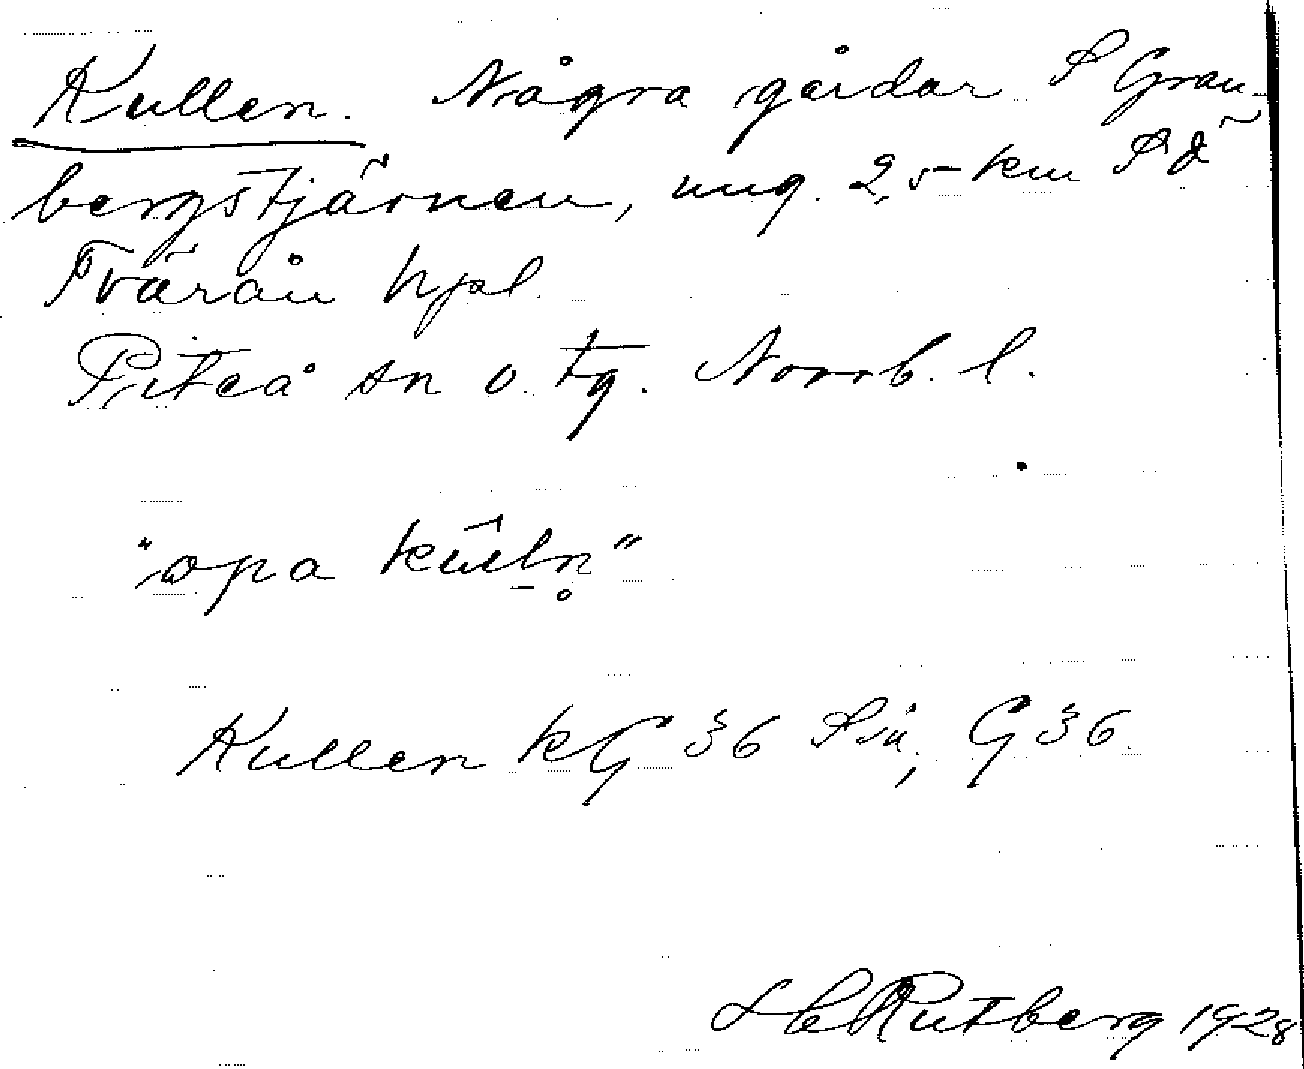 Kullen. Några gårdar S Gran-
bergstjärnen, ung. 2,5 km SÖ
Tvärån hpl.
Piteå sn o. tg. Norrb. l.
"opa kûlln̥"
Kullen kG 36 Sså, G 36.
H C Rutberg 1928